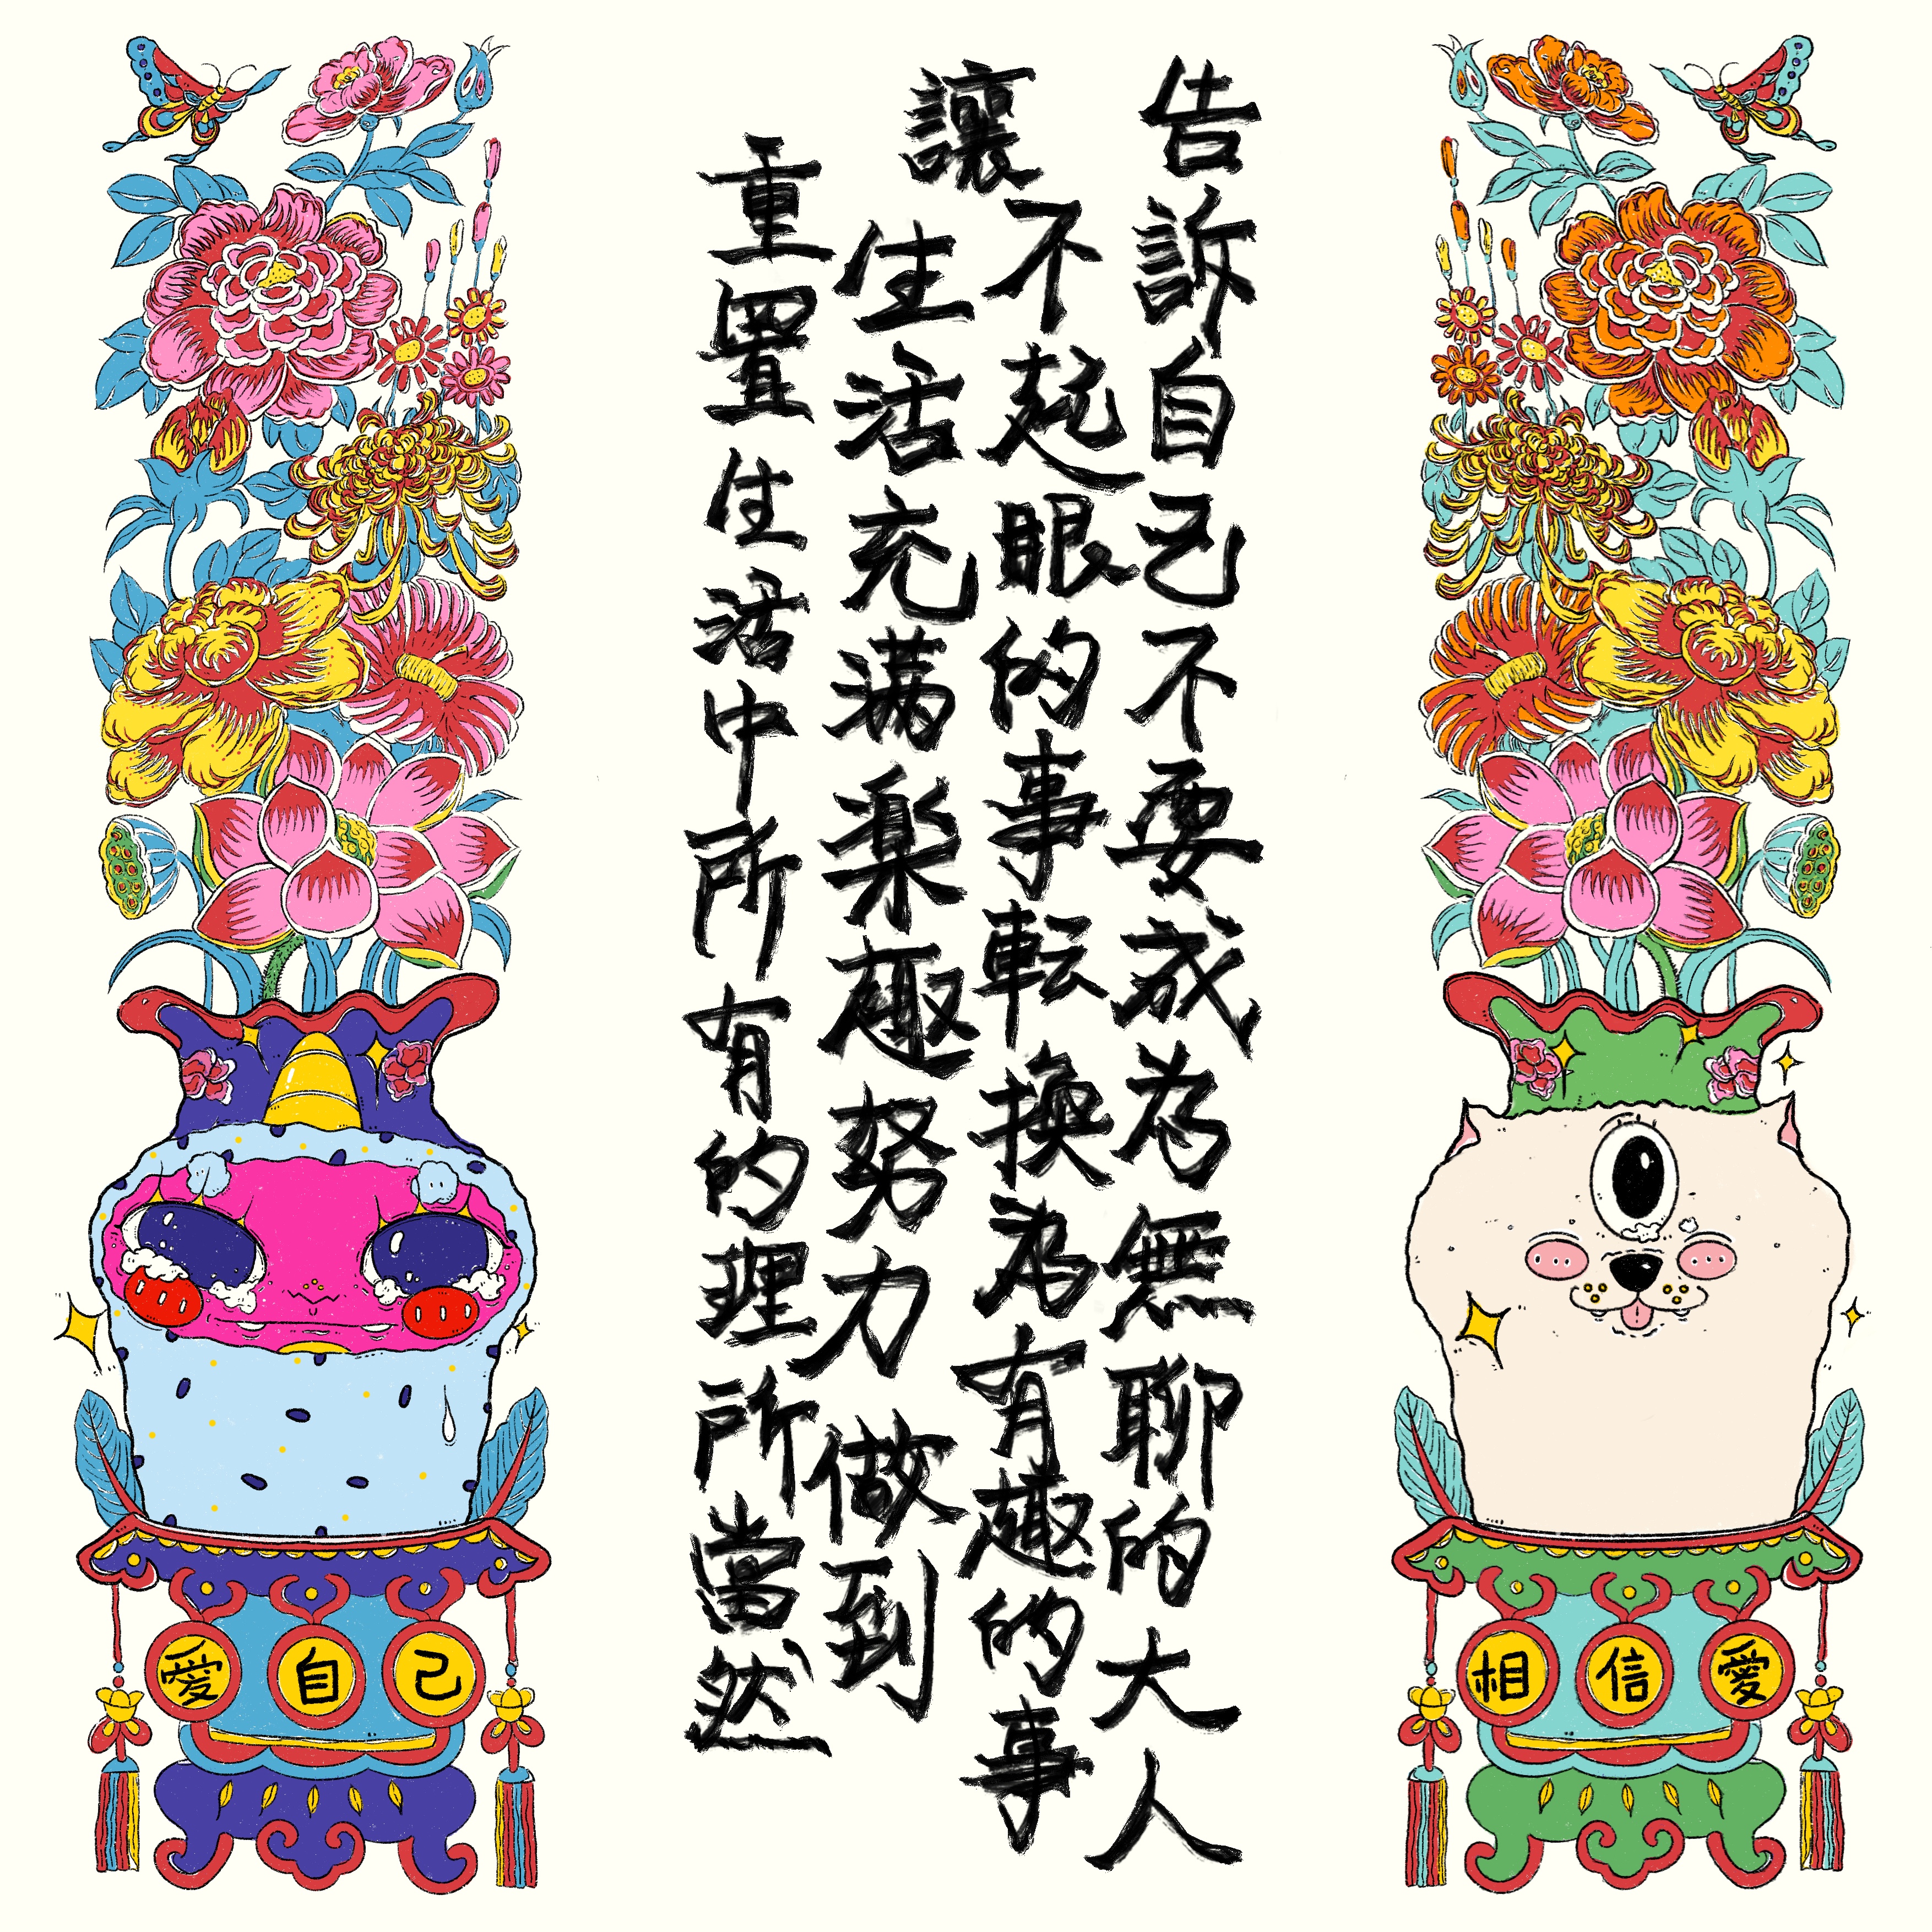 告訴自己不要成為無聊的大人
讓不起眼的事転換為有趣的事
生活充满楽趣努力做到
重置生活中所有的理所當然
愛自己
相信愛